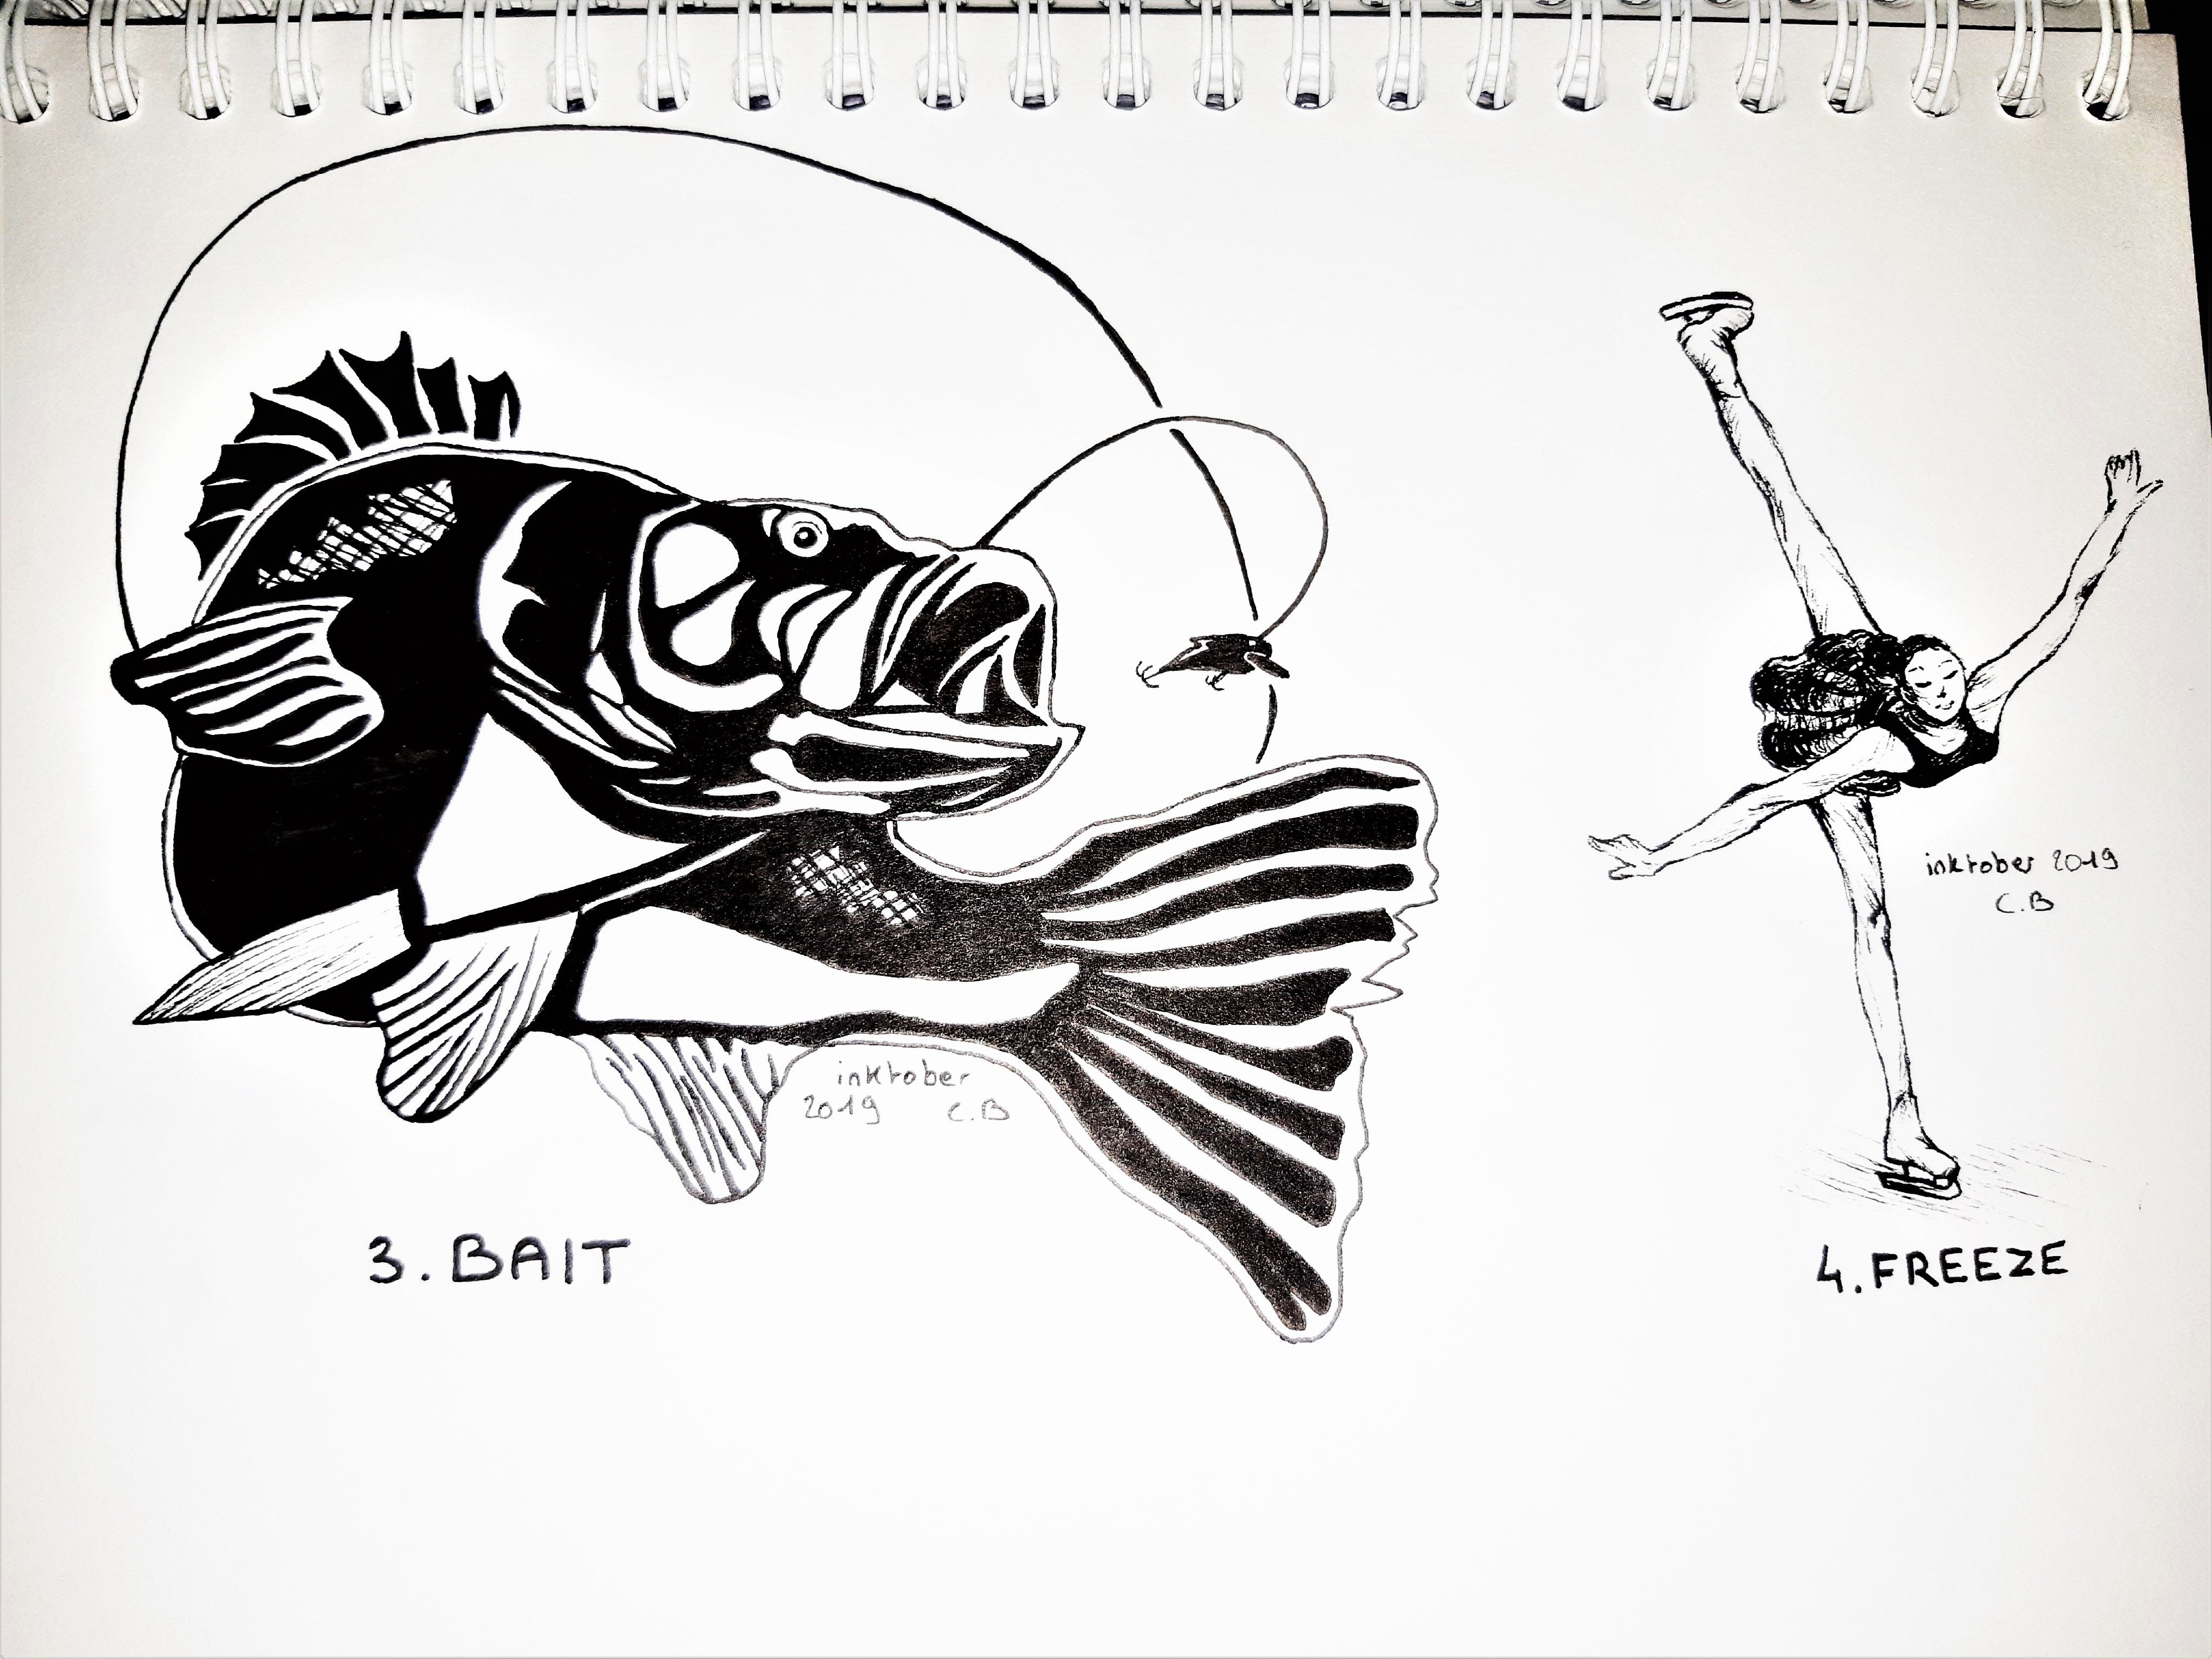 inktober
2019 C.B
3. BAIT
inktober 2019
C.B
4. FREEZE